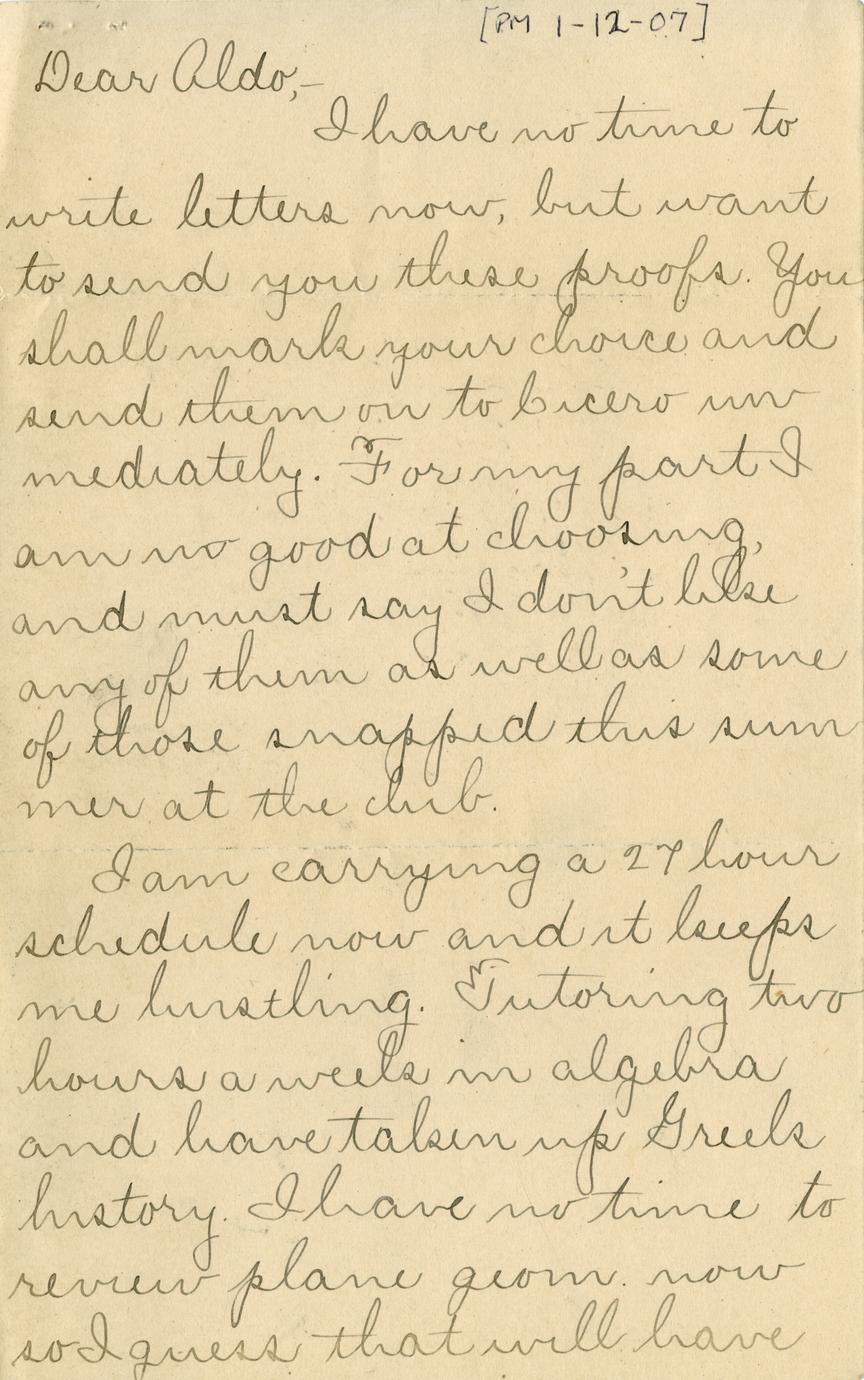 [PM 1-12-07]
Dear Aldo,-
I have no time to
write letters now, but want
to send you these proofs. You
shall mark your choice and
send them on to Cicero im
mediately. For my part I
am no good at choosing,
and must say I don't like
any of them as well as some
of those snapped this sum
mer at the club.
I am carrying a 27 hour
schedule now and it keeps
me hustling. Tutoring two
hours a week in algebra
and have taken up Greek
history. I have no time to
review plane geom. now
so I guess that will have